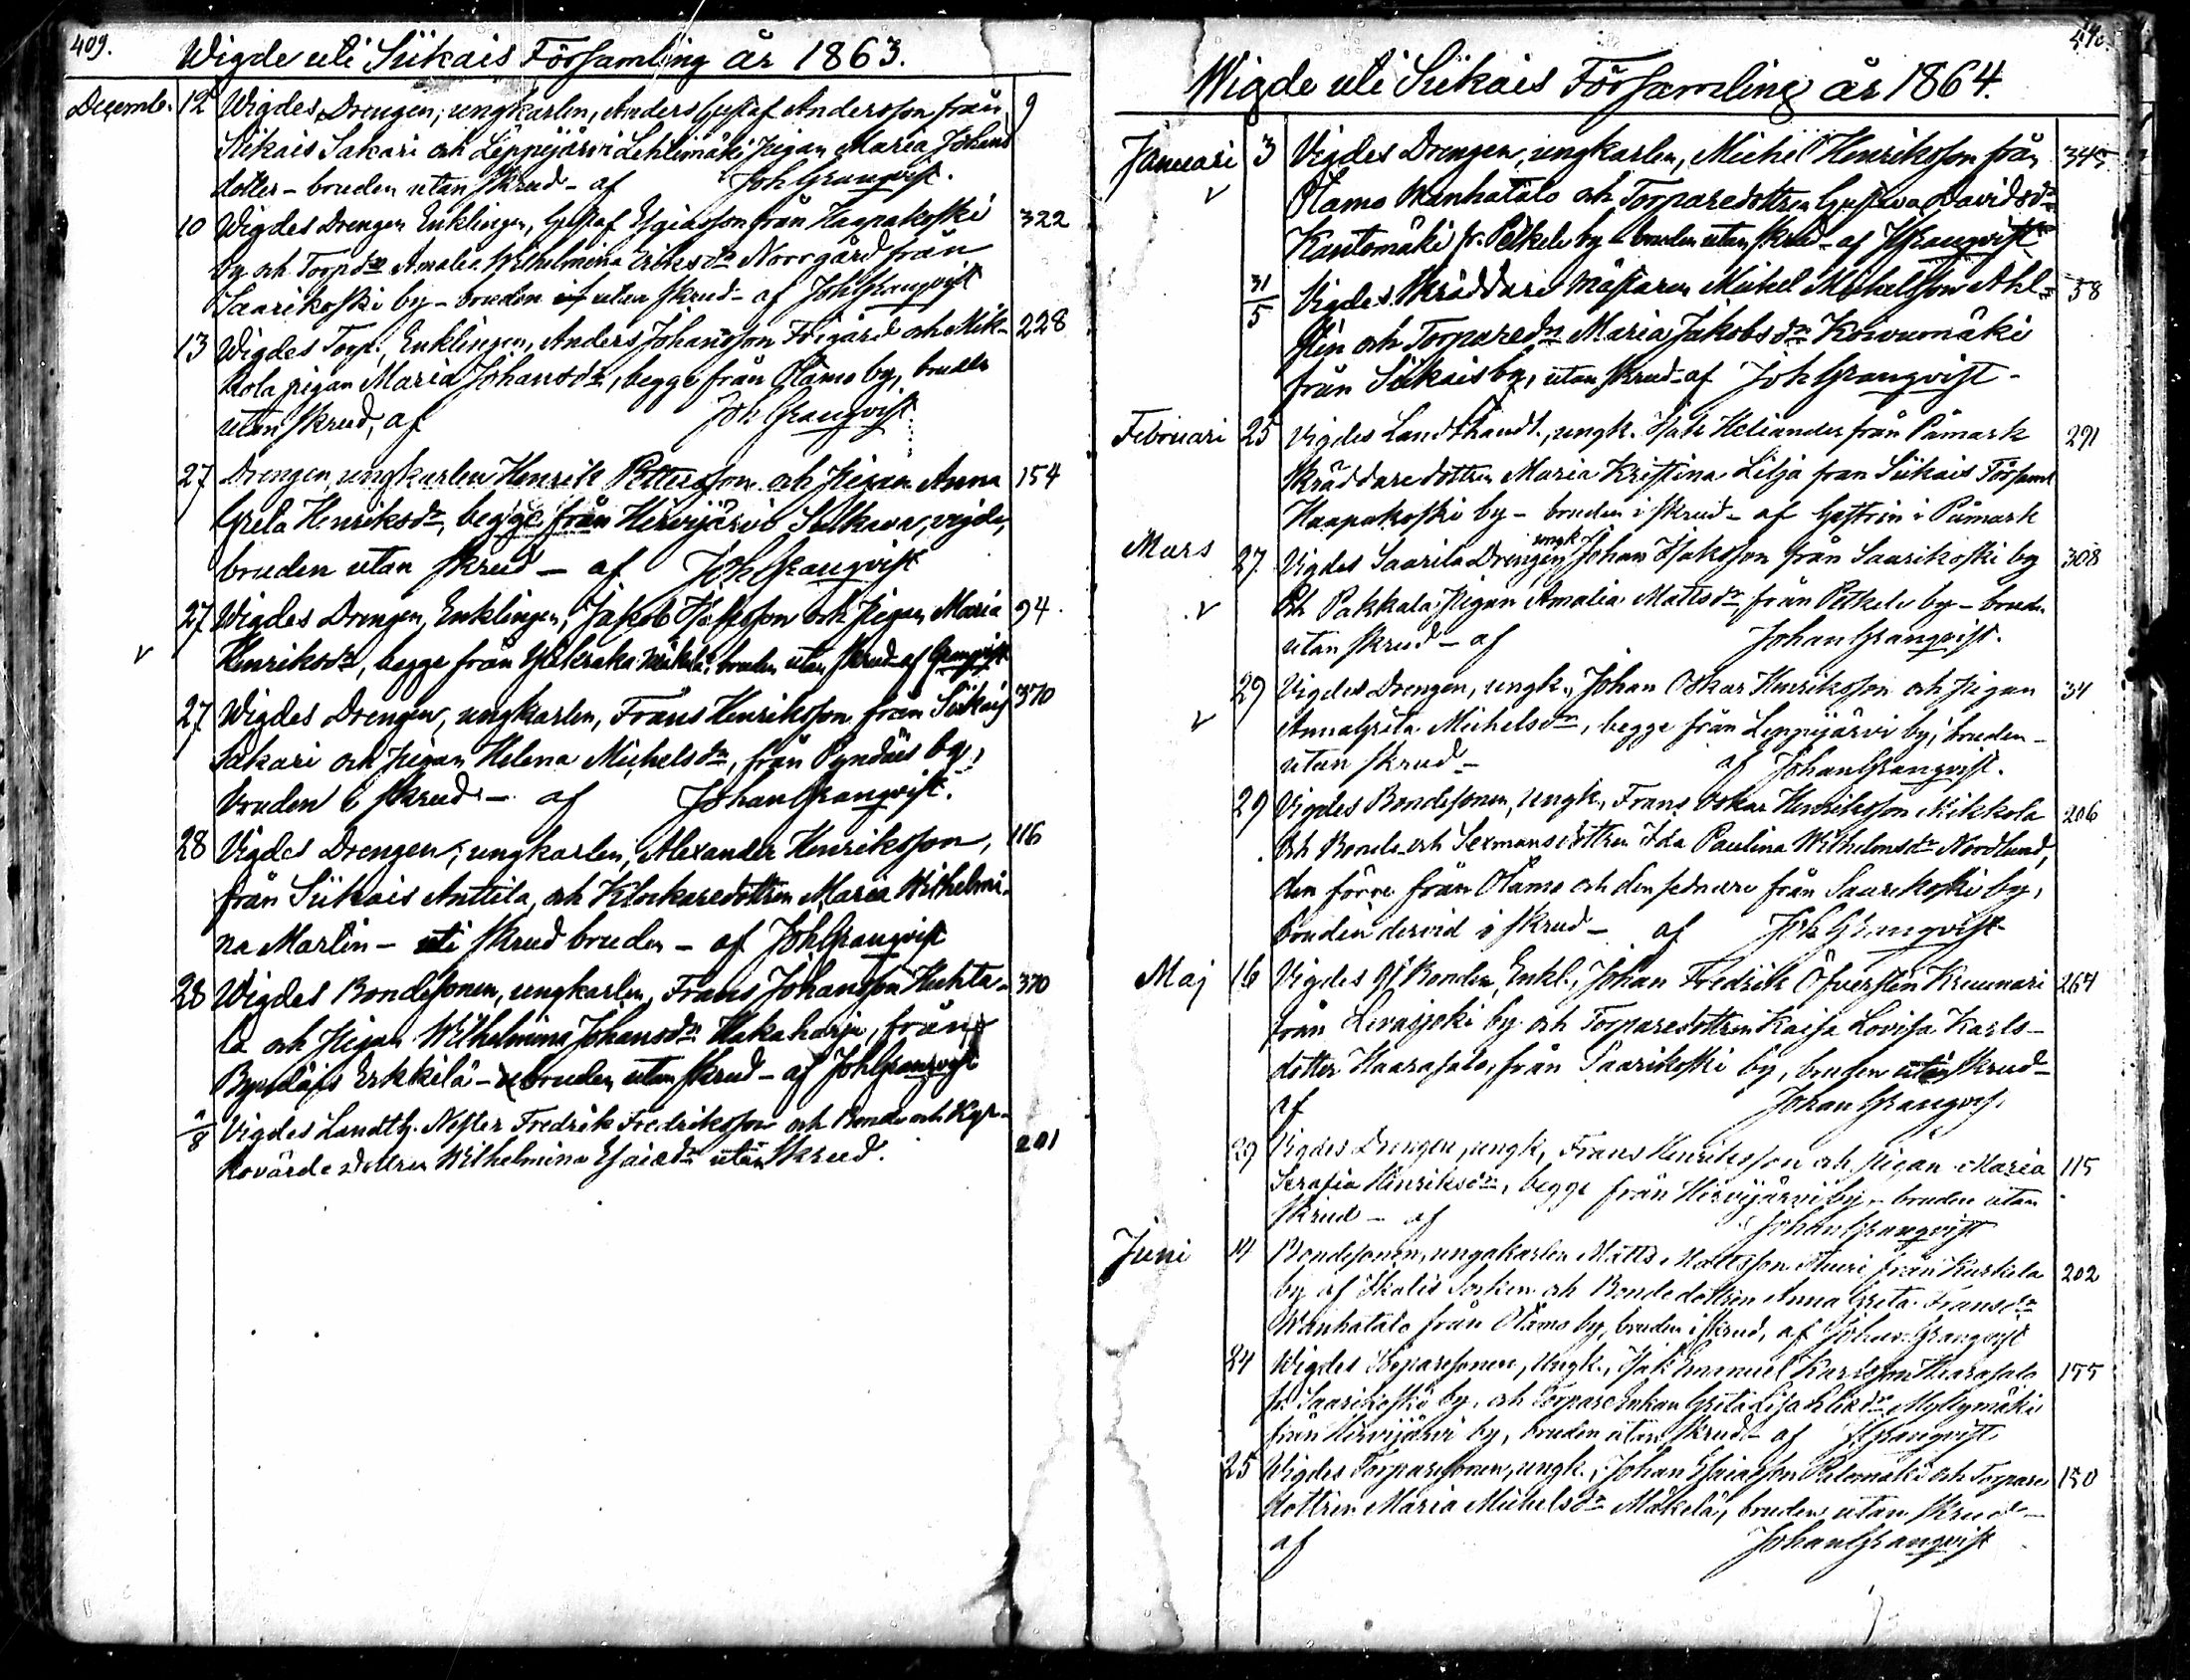 409.
Wigde uti Siikais Församling år 1863.
Decemb. 12 Wigdes Drengen, ungkarlen, Anders Gustaf Andersson från 9
Siikais Sakari och Leppijärvi Lehtimäki pigan Maria Johans
dotter - bruden utan skrud - af Joh Granqvist.
10 Wigdes Drengen Enklingen, Gustaf Esaiasson från Haapakoski 322
by och Torpdr Amalia Wilhelmina Eriksdr Norrgård från
Saarikoski by - bruden utan skrud - af Joh Granqvist
13 Wigdes Torp. Enklingen, Anders Johansson Frigård och Mik- 228
kola pigan Maria Johansdr, begge från Otamo by, bruden
utan skrud, af Joh Granqvist
27 Drengen, ungkarlen Henrik Pettersson och Pigan Anna 154
Greta Henriksdr, begge från Hirvijärvi Sulkava, vigde,
bruden utan skrud - af Joh Granqvist
27 Wigdes Drengen, Enklingen, Jakob Isaksson och pigan Maria 94.
Henriksdr, begge från bruden utan skrud af Granqvist
27 Wigdes Drengen, ungkarlen, Frans Henriksson från Siikais 370
Sakari och pigan Helena Michelsdr, från Pyndäis by,
bruden i skrud - af Johan Granqvist.
28 Vigdes Drengen, ungkarlen, Alexander Henriksson, 116
från Siikais Anttila, och Klockaredottren Maria Wilhelmi-
na Martin - uti skrud bruden - af Joh Granqvist
28 Wigdes Bondesonen, ungkarlen, Frans Johansson Huhta- 370
la och Pigan Wilhelmina Johansdr Hakaharju, från
Byndäis Erkkilä - bruden utan skrud - af Joh Granqvist
8 Vigdes Landth. Nestler Fredrik Fredriksson och Bonde och Kyr-
kovärdesdottren Wilhelmina Esaiædr utan skrud. 201
410.
Wigde uti Siikais Församling år 1864.
Januari 3 Vigdes Drengen, ungkarlen, Michel Henriksson från 345
Otamo Wanhatalo och Torparedottren Gustava Davidsdr
Kautomäki fr. Leikele by - bruden utan skrud - af J Granqvist
31/5 Vigdes Skräddare Mästaren Michel Michelsson Ahl- 58
sten och Torparedr Maria Jakobsdr Koivumäki
från Siikais by, utan skrud - af Joh Granqvist -
Februari 25 Vigdes Landthandl., ungk. Isak Heliander från Påmark 291
Skräddaredottren Maria Kristina Lilja från Siikais Församl
Haapakoski by - bruden i skrud - af Gestrin i Påmark
Mars 27. Vigdes Saarila Drengen ungk. Johan Isaksson från Saarikoski by 308
och Pakkala Pigan Amalia Mattsdr från Leikele by - bruden
utan skrud - af Johan Granqvist.
29 Vigdes Drengen, ungk., Johan Oskar Henriksson och pigan 34
Anna Greta Michelsdr, begge från Leppijärvi by, bruden -
utan skrud - af Johan Granqvist.
29 Vigdes Bondesonen, ungk., Frans Oskar Henriksson Mikkola 206
och Bonde- och Sexmansdottren Ida Paulina Wilhelmsdr Nordlund,
den förre från Otamo och den sednare från Saarikoski by,
bruden dervid i skrud - af Joh Granqvist
Maj 16 Vigdes Bonden, Enkl., Johan Fredrik Öfversten Kreunari 264
från Levasjoki by och Torparedottren Kaisa Lovisa Karls-
dotter Haarasalo, från Saarikoski by, bruden utan skrud -
af Johan Granqvist.
29 Vigdes Drengen, ungk., Frans Henriksson och pigan Maria 115
Serafia Henriksdr, begge från Hirvijärvi by - bruden utan
skrud - af Johan Granqvist
Juni 14 Bondesonen, ungakarlen Matts Mattsson från Kuskela 202
by af Ikalis Socken och Bondedottren Anna Greta Fransdr
Wanhatalo från Otamo by, bruden i skrud, af Johan Granqvist
24 Wigdes Torparesonen, ungk., Isak Emanuel Karlsson Haarasalo 155
fr. Saarikoski by, och Torpare Enkan Greta Lisa Eliædr Myllymäki
från Hirvijärvi by, bruden utan skrud - af J Granqvist
25 Wigdes Torparesonen, ungk., Johan Esaiasson Palomäki och Torpare 150
dottren Maria Michelsdr Mäkelä, bruden utan skrud -
af Johan Granqvist